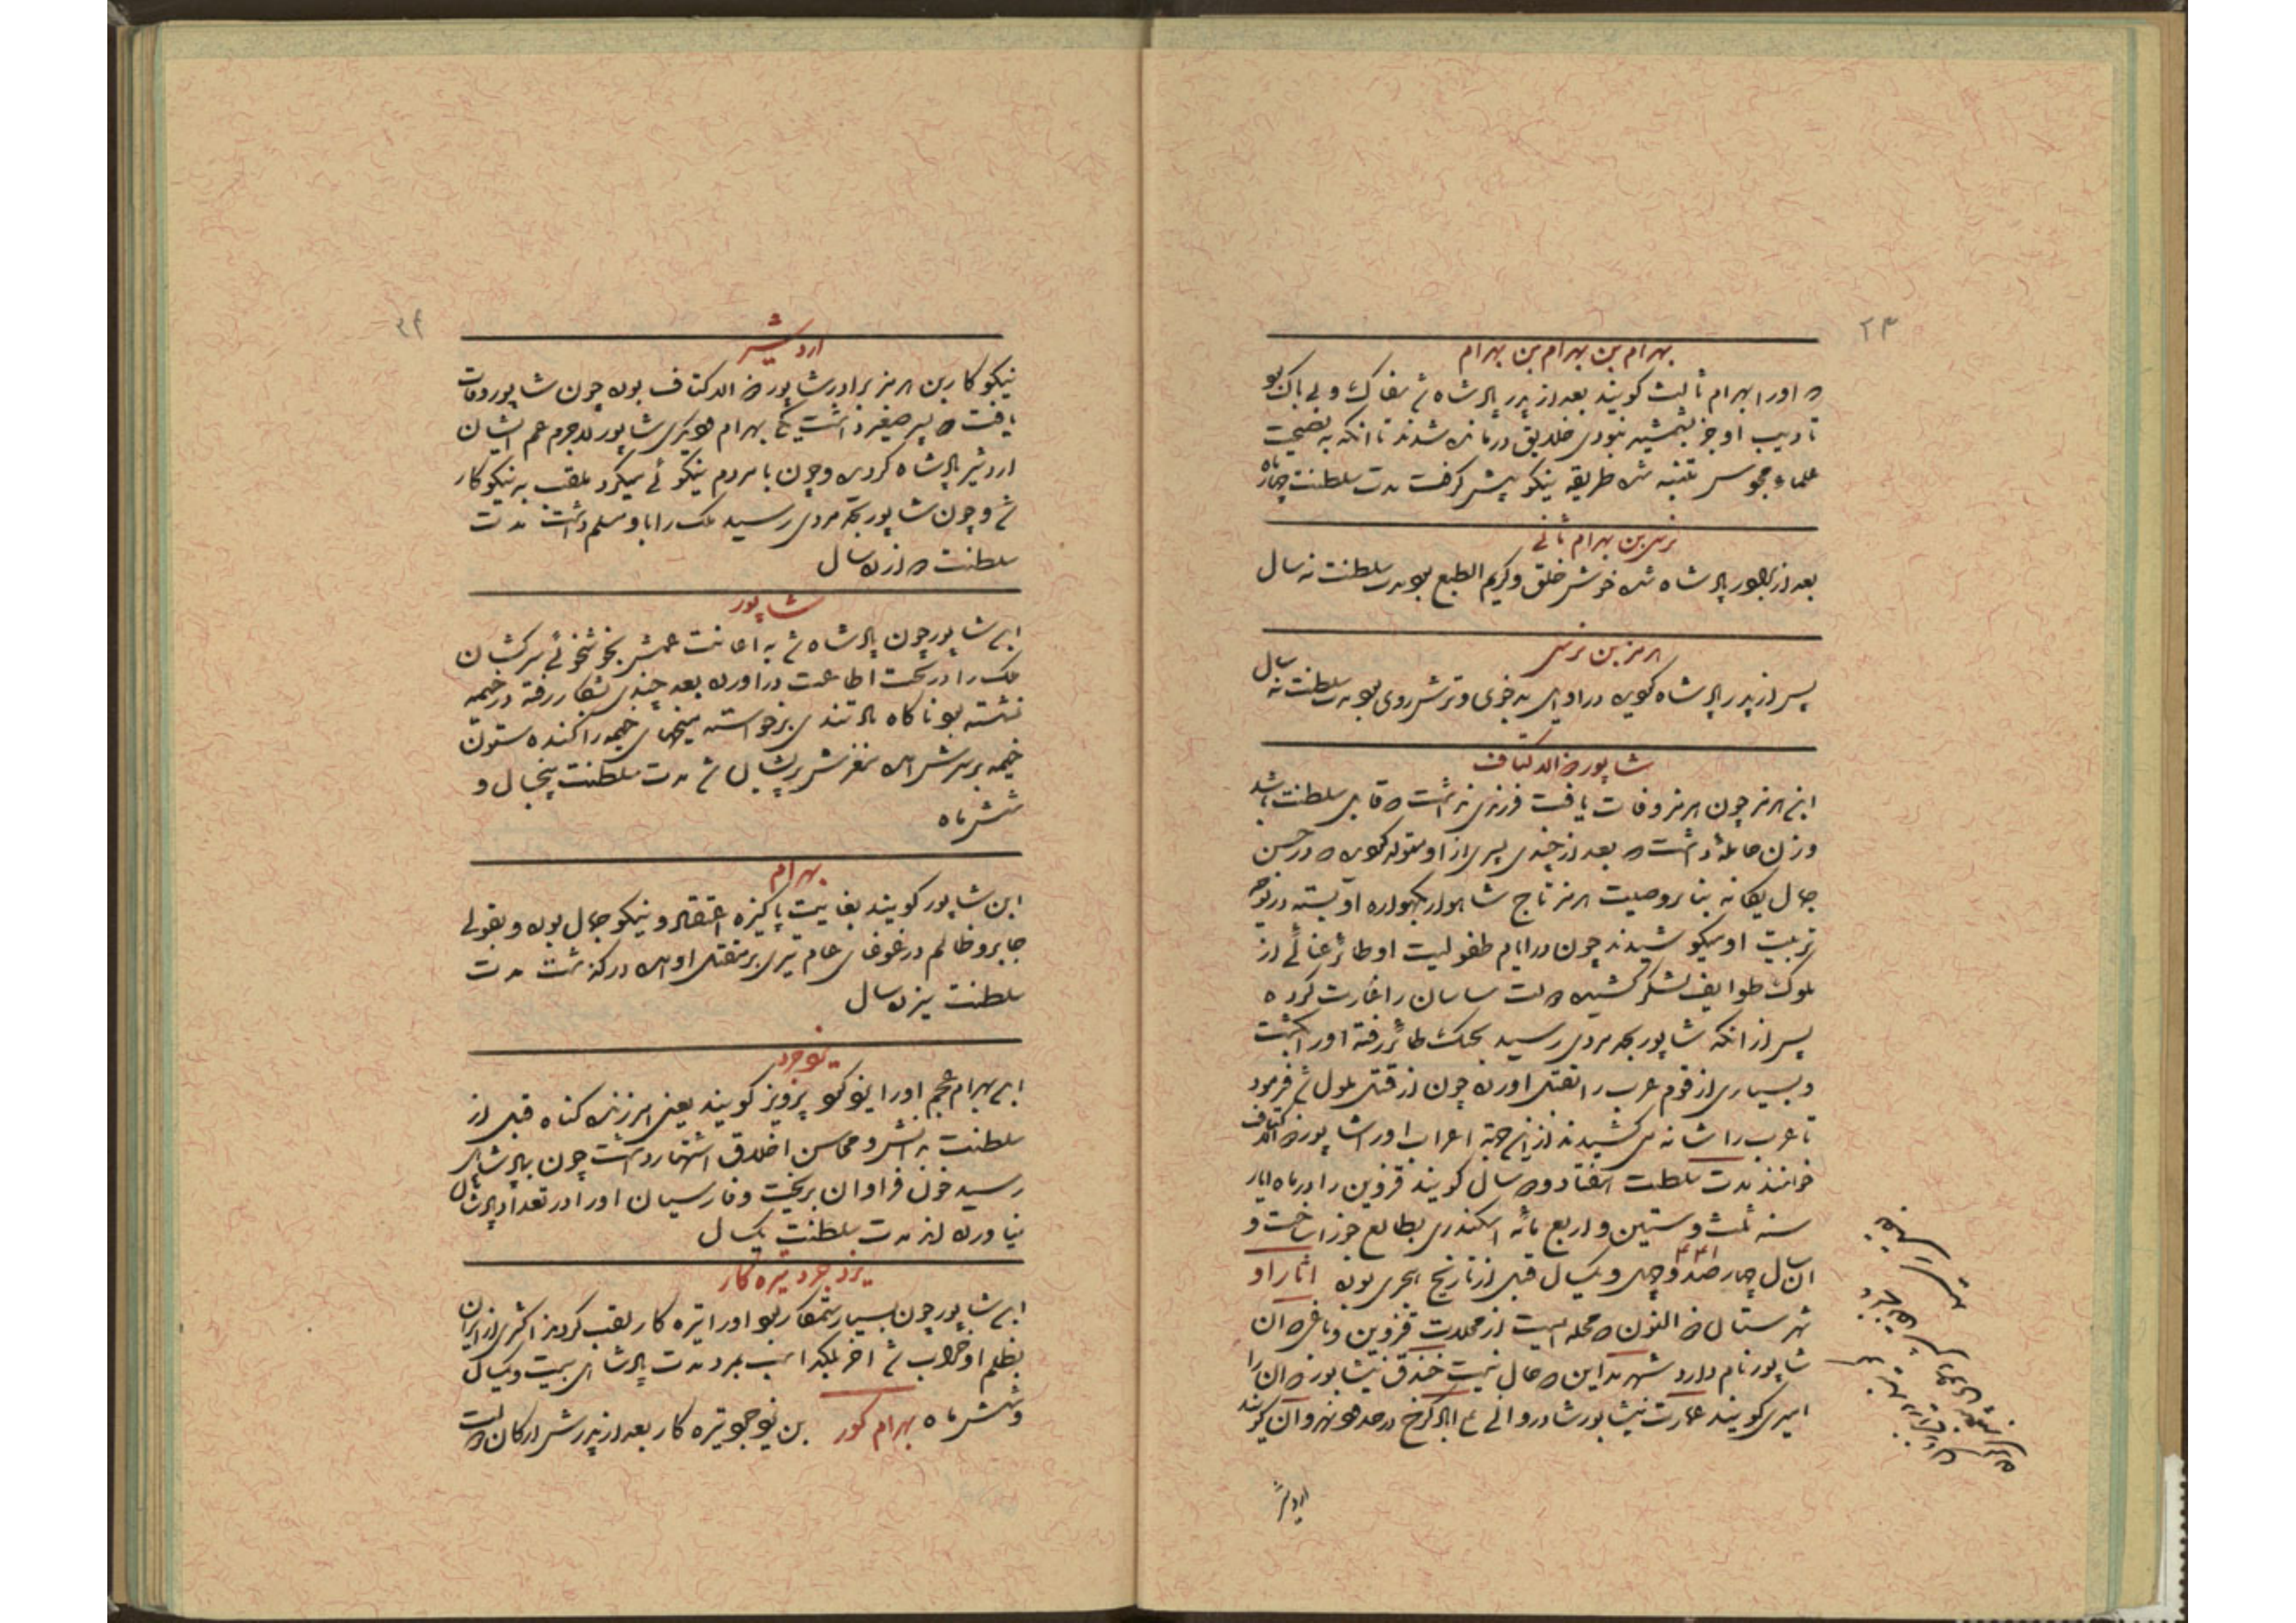 ۲۳
بهرام بن بهرام بن بهرام
که اورا بهرام ثالث کویند بعد از پدر پادشاه شد سفاک و بی باک بود
تادیب او جز بشمشیر نبودی خلایق درمانده شدند تا انکه به نصیحت
علماء مجوس متنبه شده طریقه نیکو پیش کرفت مدت سلطنت چهار ماه
نرسی بن بهرام ثانی
بعد از برادر پادشاه شده خوش خلق و کریم الطبع بود مدت سلطنت نه سال
هرمز بن نرسی
پس از پدر پادشاه کردیده در اوایل بدخوی و ترش روی بود مدت سلطنت نه سال
شاپور ذوالاکتاف
ابن هرمز چون هرمز وفات یافت فرزندی نداشت که قابل سلطنت باشد
و زن حامله داشت که بعد از چندی پسری از او متولد کردید که در حسن
جمال یکانه بنا بر وصیت هرمز تاج شاهوار بکهواره او بسته در
تربیت او میکوشیدند چون در ایام طفولیت او طائر غسانی از
ملوک طوایف لشکر کشیده ملک ساسان را غارت کرده
پس از انکه شاپور بحد مردی رسید بجنک طائر رفته اورا بکشت
و بسیاری از قوم عرب را بقتل اورده چون از قتل ملول شد فرمود
تا عرب را شانه می کشیدند از این جهة اعراب اورا شاپور ذوالاکتاف
خوانند مدت سلطنت هفتاد و دو سال کویند قزوین را در ماه ایار
سنه ثلث و ستین و اربع مائه اسکندری بطالع جوزا ساخت و
ان سال چهار صد و چهل و یکسال قبل از تاریخ هجری بوده اثار او
۴۴۱
شهرستان که الان محله ایست از محلات قزوین و باغی که ان
شاپور نام دارد شهر مداین که حال نیست خندق نیشابور که ان را
امیری کویند عمارت نیشابور شادروانی در حد نهروان کویند
اردشیر
۲۴
اردشیر
نیکوکار بن هرمز برادر شاپور ذوالاکتاف بوده چون شاپور وفات
یافت دو پسر صغیر داشت یکی بهرام دیکری شاپور لاجرم عم ایشان
اردشیر پادشاه کردیده و چون با مردم نیکوئی میکرد ملقب به نیکوکار
شد و چون شاپور بحد مردی رسید ملک را باو مسلم داشت مدت
سلطنت دوازده سال
شاپور
ابن شاپور چون پادشاه شد به اعانت عمش بخوشخوئی سرکشان
ملک را در تحت اطاعت دراورده بعد چندی بشکار رفته در خیمه
نشسته بود ناکاه باد تندی برخواسته میخهای خیمه را کنده ستون
خیمه بر سرش امده مغزش پریشان شد مدت سلطنت پنجسال و
شش ماه
بهرام
ابن شاپور کویند بغایت پاکیزه اعتقاد و نیکو جمال بوده و بقولی
جابر و ظالم در غوغای عام تیری بر مقتل او امده درکذشت مدت
سلطنت یزده سال
یزدجرد
ابن بهرام عجم اورا یزدکرد پرویز کویند یعنی امرزنده کناه قبل از
سلطنت بدانش و محاسن اخلاق اشتهار داشت چون بپادشاهی
رسید خون فراوان بریخت و فارسیان اورا در تعداد پادشاهان
نیاورده اند مدت سلطنت یکسال
یزدجرد بزه کار
ابن شاپور چون بسیار ستمکار بود اورا بزه کار لقب کردند اکثری از ایران
بظلم او خراب شد اخر بلکد اسب بمرد مدت پادشاهی بیست و یکسال
و شش ماه بهرام کور بن یزدجرد بزه کار بعد از پدرش ارکان دولت